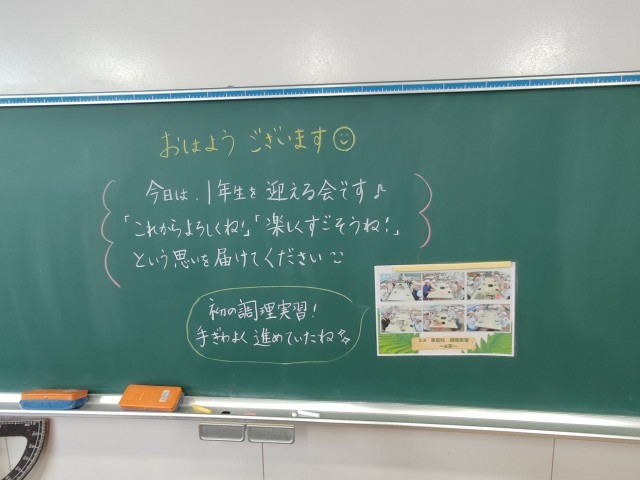 おはようございます
今日は、1年生を迎える会です♪
「これからよろしくね!」「楽しくすごそうね!」
という思いを届けてください
初の調理実習!
手ぎわよく進めていたね
家庭科 調理実習